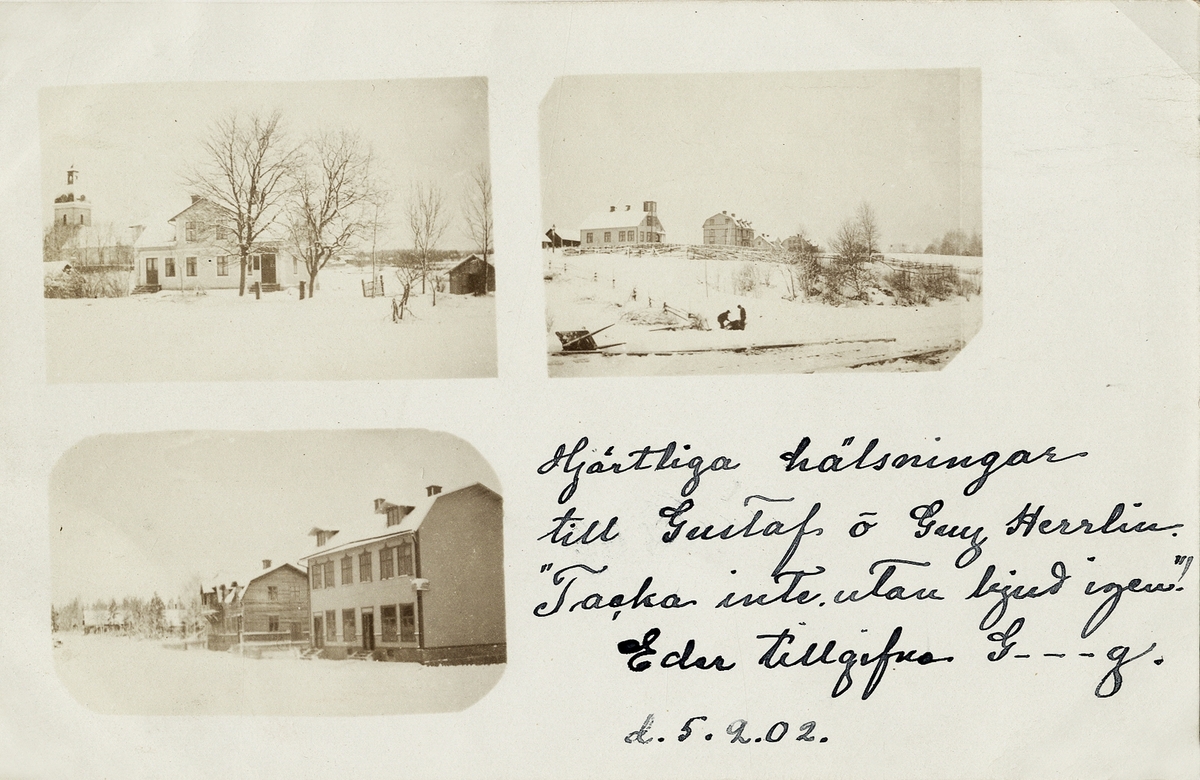 Hjärtliga hälsningar
till Gustaf o Guy Herrlin.
"Tacka inte, utan bjud igen"!
Eder tillgifne G---g.
d. 5. 2. 02.